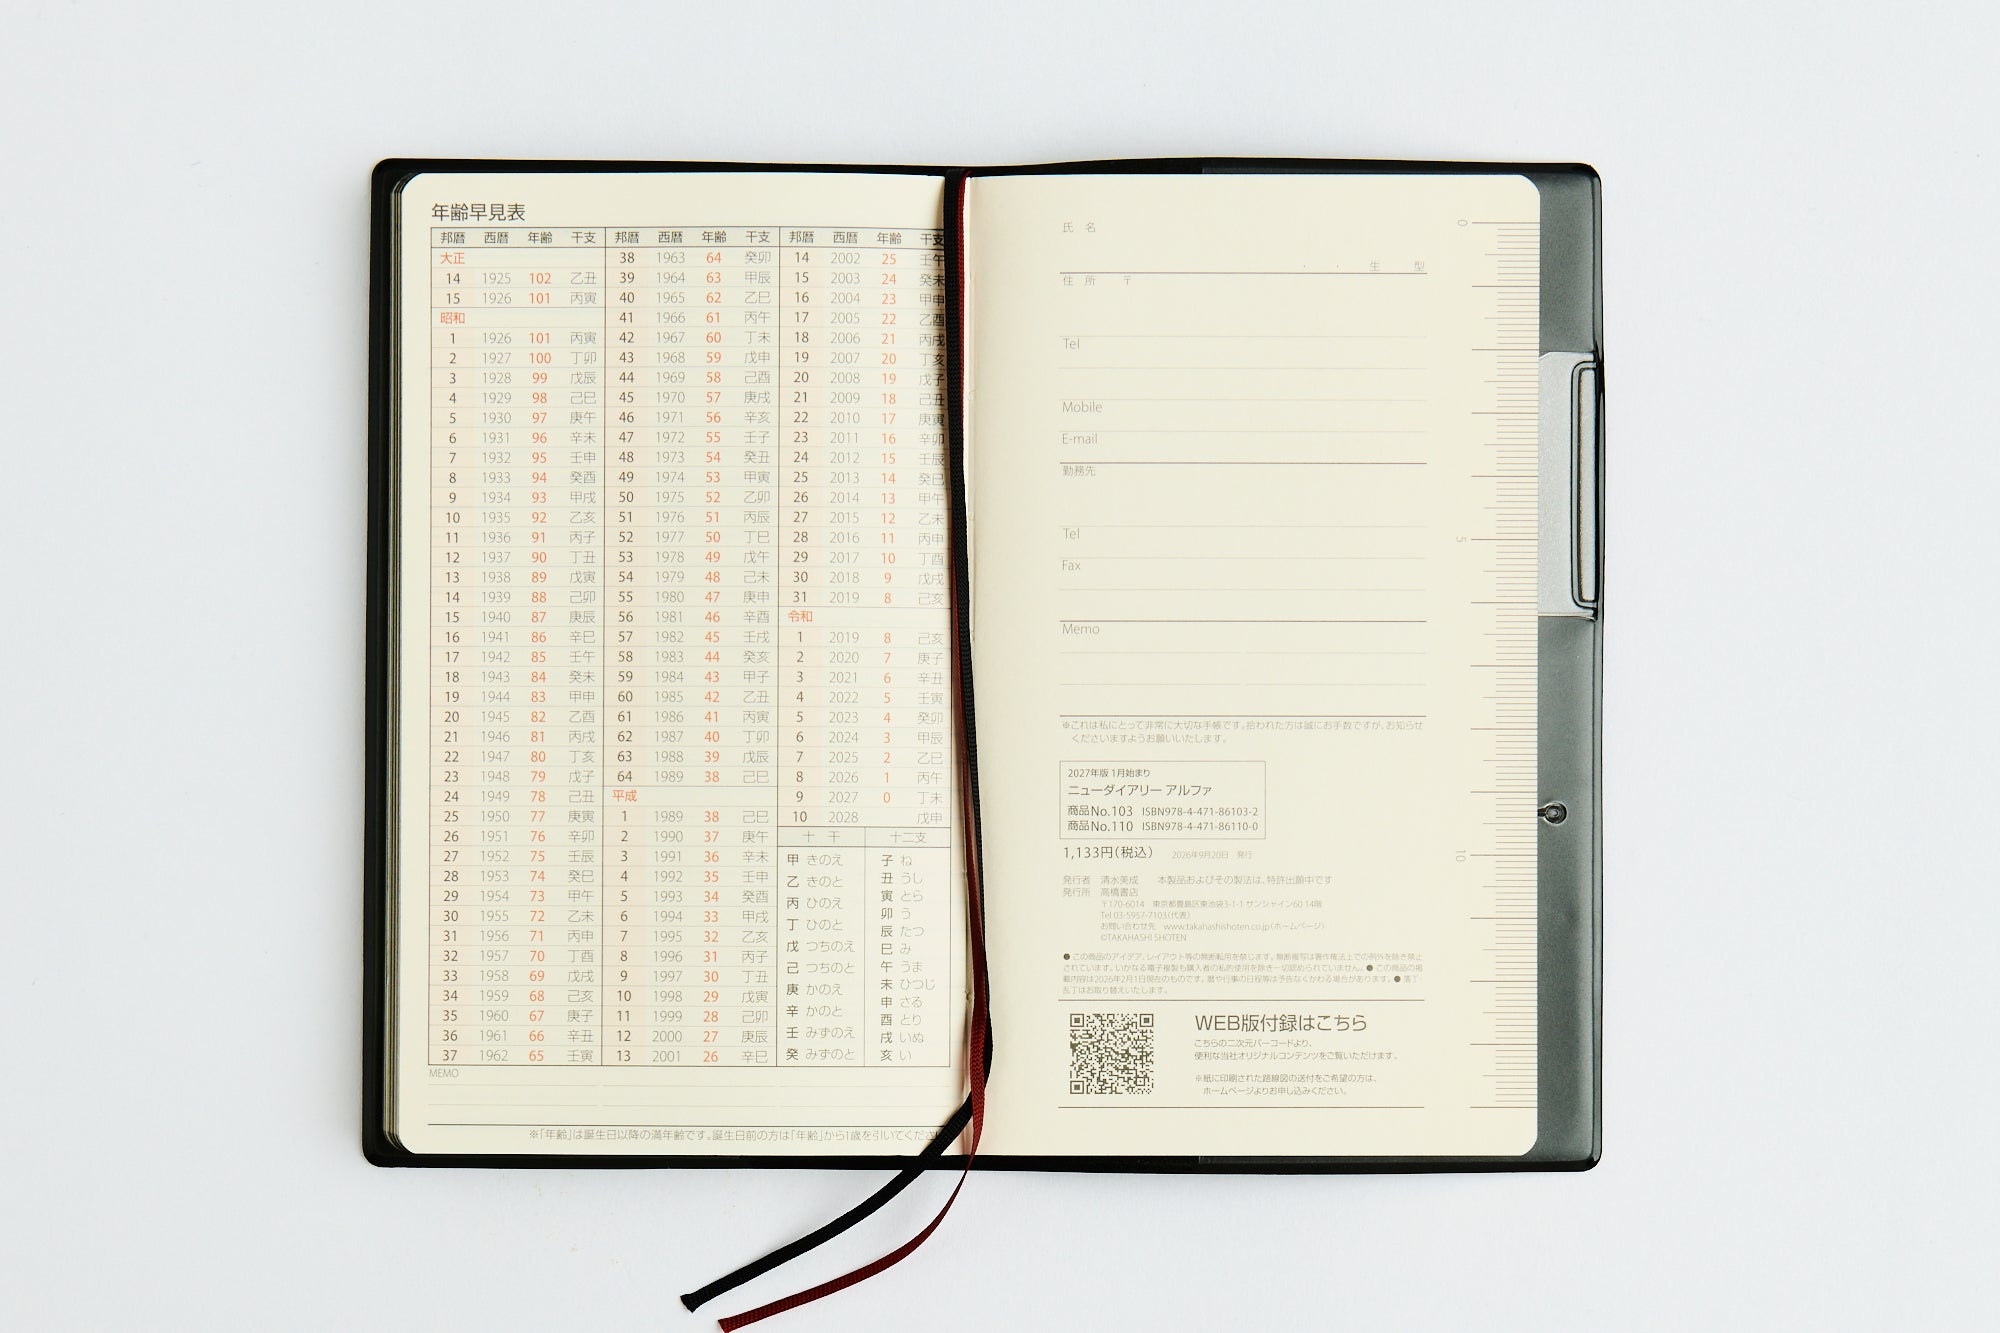 年齢早見表
邦暦 西暦 年齢 干支
大正
14 1925 102 乙丑
15 1926 101 丙寅
昭和
1 1926 101 丙寅
2 1927 100 丁卯
3 1928 99 戊辰
4 1929 98 己巳
5 1930 97 庚午
6 1931 96 辛未
7 1932 95 壬申
8 1933 94 癸酉
9 1934 93 甲戌
10 1935 92 乙亥
11 1936 91 丙子
12 1937 90 丁丑
13 1938 89 戊寅
14 1939 88 己卯
15 1940 87 庚辰
16 1941 86 辛巳
17 1942 85 壬午
18 1943 84 癸未
19 1944 83 甲申
20 1945 82 乙酉
21 1946 81 丙戌
22 1947 80 丁亥
23 1948 79 戊子
24 1949 78 己丑
25 1950 77 庚寅
26 1951 76 辛卯
27 1952 75 壬辰
28 1953 74 癸巳
29 1954 73 甲午
30 1955 72 乙未
31 1956 71 丙申
32 1957 70 丁酉
33 1958 69 戊戌
34 1959 68 己亥
35 1960 67 庚子
36 1961 66 辛丑
37 1962 65 壬寅
邦暦 西暦 年齢 干支
38 1963 64 癸卯
39 1964 63 甲辰
40 1965 62 乙巳
41 1966 61 丙午
42 1967 60 丁未
43 1968 59 戊申
44 1969 58 己酉
45 1970 57 庚戌
46 1971 56 辛亥
47 1972 55 壬子
48 1973 54 癸丑
49 1974 53 甲寅
50 1975 52 乙卯
51 1976 51 丙辰
52 1977 50 丁巳
53 1978 49 戊午
54 1979 48 己未
55 1980 47 庚申
56 1981 46 辛酉
57 1982 45 壬戌
58 1983 44 癸亥
59 1984 43 甲子
60 1985 42 乙丑
61 1986 41 丙寅
62 1987 40 丁卯
63 1988 39 戊辰
64 1989 38 己巳
平成
1 1989 38 己巳
2 1990 37 庚午
3 1991 36 辛未
4 1992 35 壬申
5 1993 34 癸酉
6 1994 33 甲戌
7 1995 32 乙亥
8 1996 31 丙子
9 1997 30 丁丑
10 1998 29 戊寅
11 1999 28 己卯
12 2000 27 庚辰
13 2001 26 辛巳
邦暦 西暦 年齢 干支
14 2002 25 壬午
15 2003 24 癸未
16 2004 23 甲申
17 2005 22 乙酉
18 2006 21 丙戌
19 2007 20 丁亥
20 2008 19 戊子
21 2009 18 己丑
22 2010 17 庚寅
23 2011 16 辛卯
24 2012 15 壬辰
25 2013 14 癸巳
26 2014 13 甲午
27 2015 12 乙未
28 2016 11 丙申
29 2017 10 丁酉
30 2018 9 戊戌
31 2019 8 己亥
令和
1 2019 8 己亥
2 2020 7 庚子
3 2021 6 辛丑
4 2022 5 壬寅
5 2023 4 癸卯
6 2024 3 甲辰
7 2025 2 乙巳
8 2026 1 丙午
9 2027 0 丁未
10 2028 戊申
十 干
甲 きのえ
乙 きのと
丙 ひのえ
丁 ひのと
戊 つちのえ
己 つちのと
庚 かのえ
辛 かのと
壬 みずのえ
癸 みずのと
十二支
子 ね
丑 うし
寅 とら
卯 う
辰 たつ
巳 み
午 うま
未 ひつじ
申 さる
酉 とり
戌 いぬ
亥 い
MEMO
※「年齢」は誕生日以降の満年齢です。誕生日前の方は「年齢」から1歳を引いてくださ
氏 名
・ ・ 生 型
住 所 〒
Tel
Mobile
E-mail
勤務先
Tel
Fax
Memo
※これは私にとって非常に大切な手帳です。拾われた方は誠にお手数ですが、お知らせ
くださいますようお願いいたします。
2027年版 1月始まり
ニューダイアリー アルファ
商品No.103 ISBN978-4-471-86103-2
商品No.110 ISBN978-4-471-86110-0
1,133円(税込) 2026年9月20日 発行
発行者 清水美成 本製品およびその製法は、特許出願中です
発行所 高橋書店
〒170-6014 東京都豊島区東池袋3-1-1 サンシャイン60 14階
Tel 03-5957-7103(代表)
お問い合わせ先 www.takahashishoten.co.jp(ホームページ)
©TAKAHASHI SHOTEN
● この商品のアイデア、レイアウト等の無断転用を禁じます。無断複写は著作権法上での例外を除き禁止
されています。いかなる電子複製も購入者の私的使用を除き一切認められていません。● この商品の掲
載内容は2026年2月1日現在のものです。暦や行事の日程等は予告なくかわる場合があります。● 落丁・
乱丁はお取り替えいたします。
WEB版付録はこちら
こちらの二次元バーコードより、
便利な当社オリジナルコンテンツをご覧いただけます。
※紙に印刷された路線図の送付をご希望の方は、
ホームページよりお申し込みください。
0
5
10